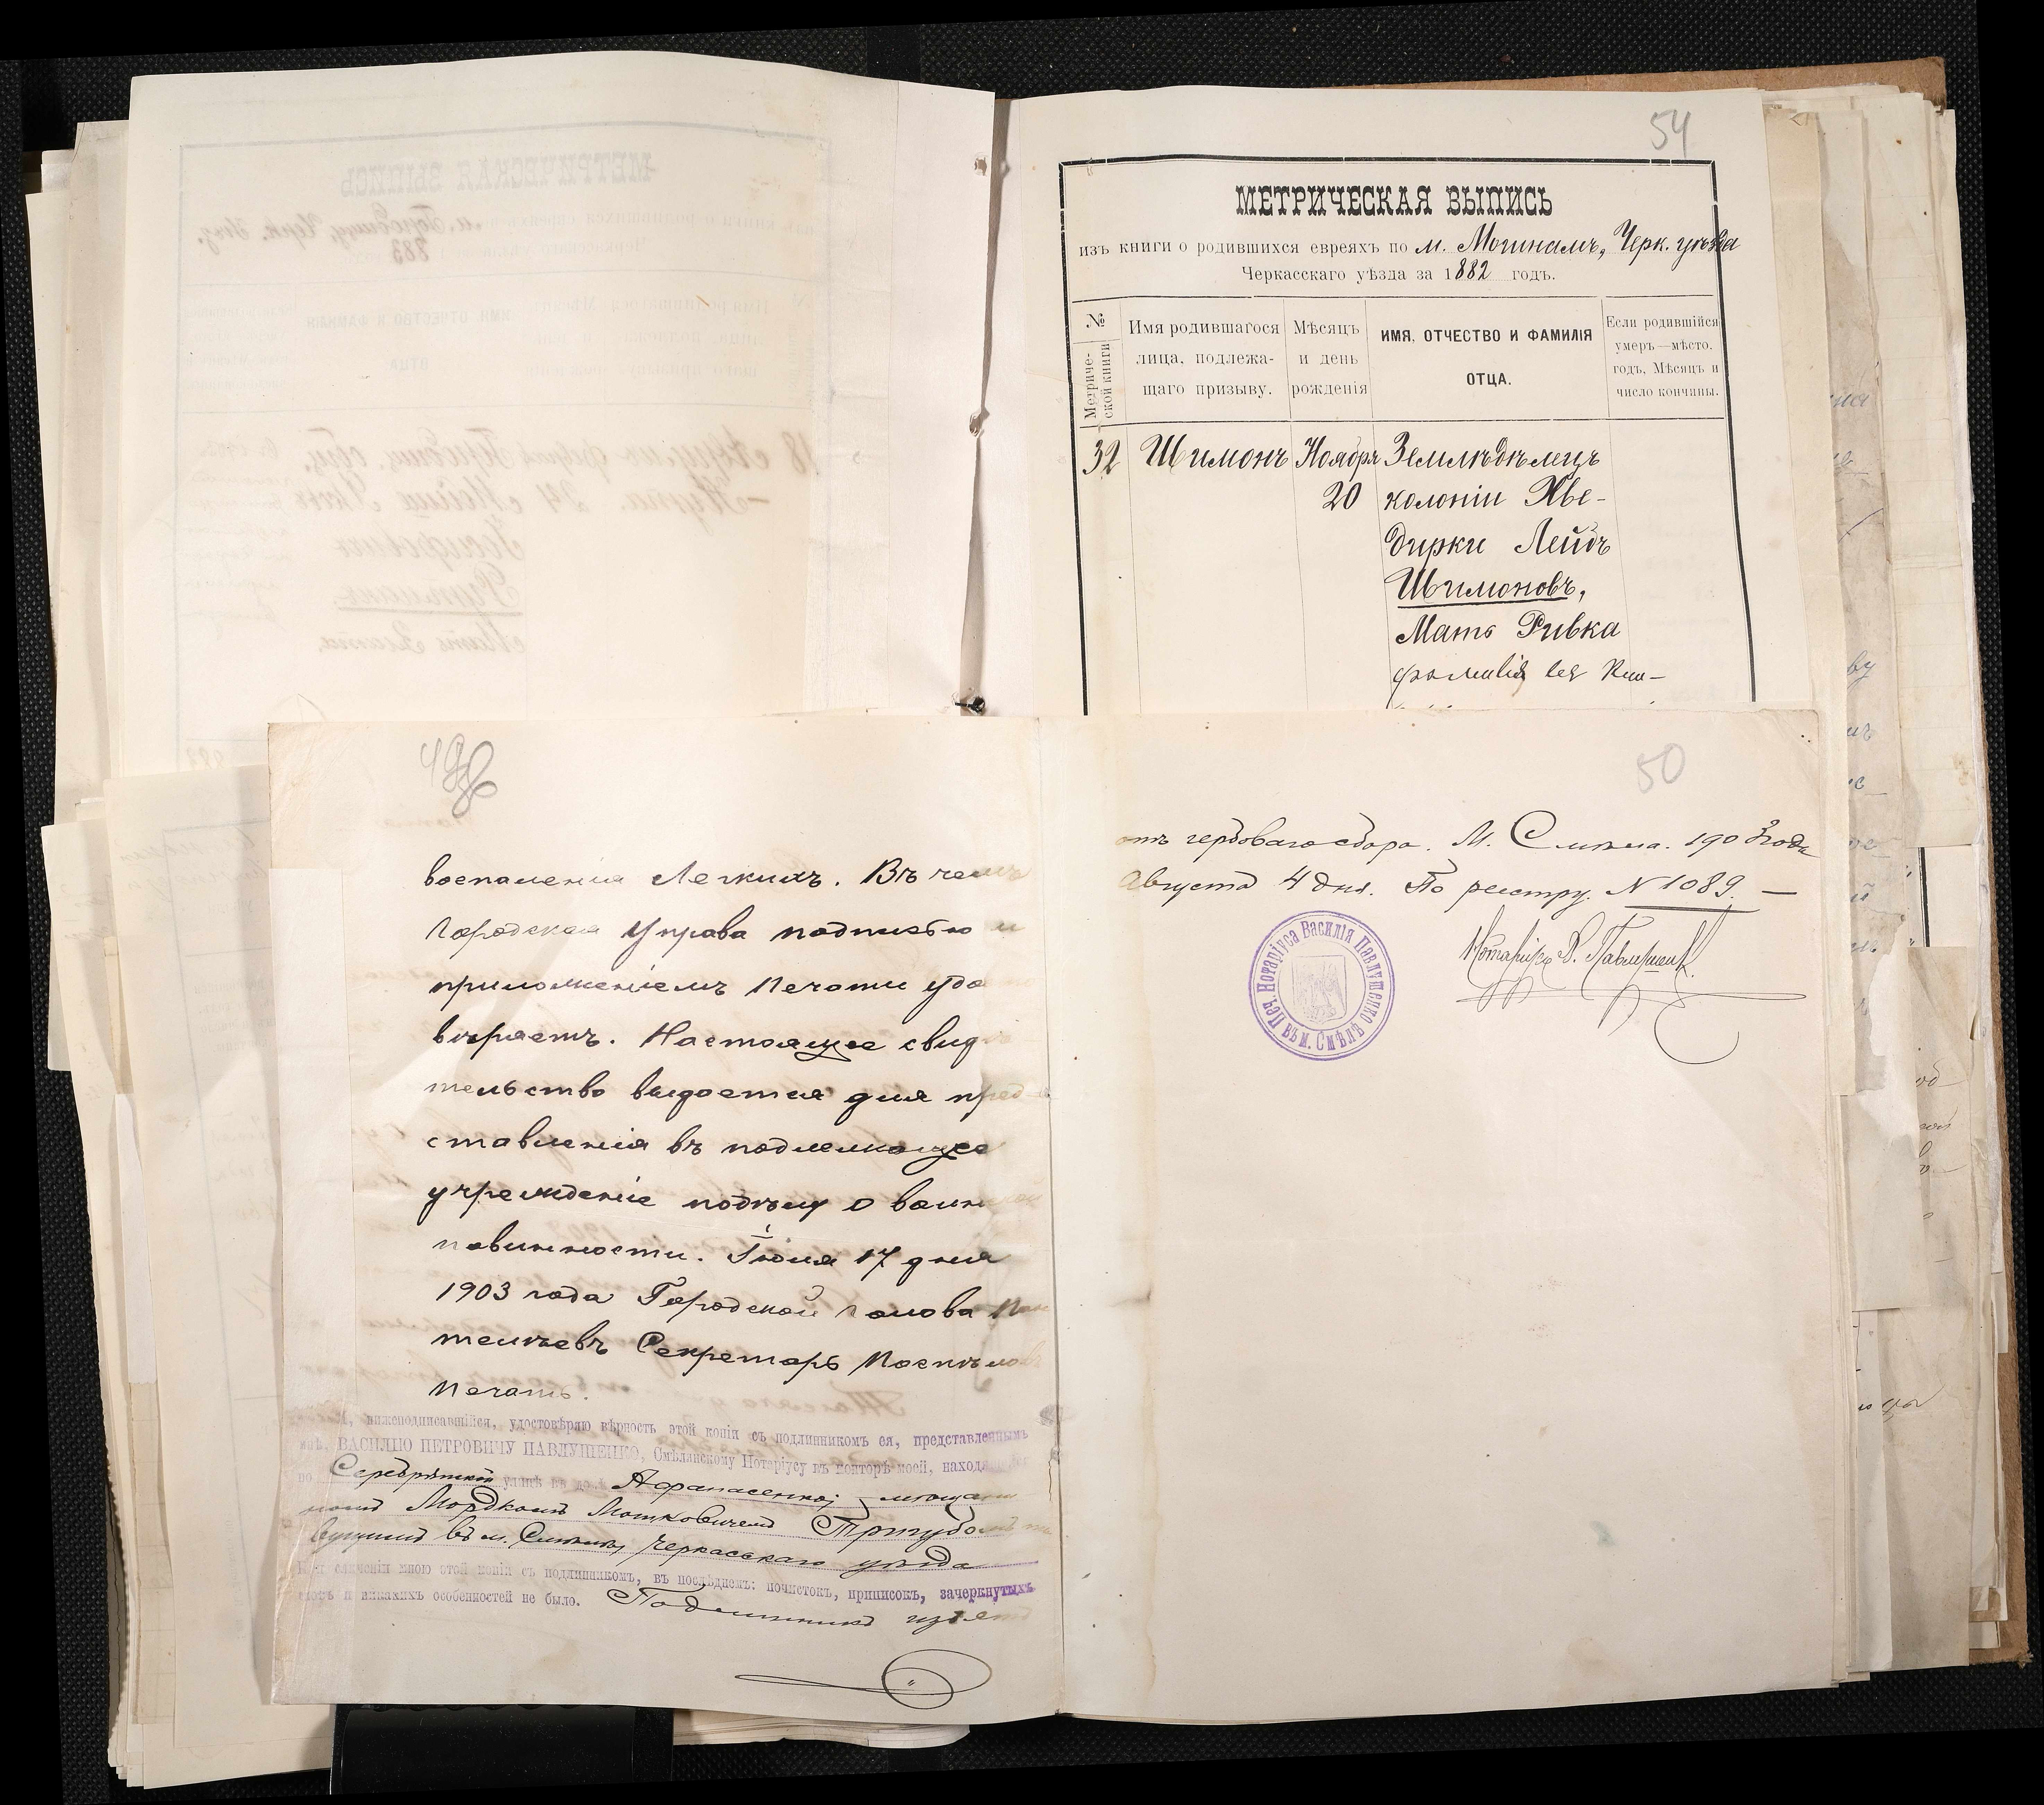 54
МЕТРИЧЕСКАЯ ВЫПИСЬ
изъ книги о родившихся евреяхъ по м. Мошнамъ, Черк. уѣзда
Черкасскаго уѣзда за 1882 годъ.
№ Метриче-
ской книги
Имя родившагося
лица, подлежа-
щаго призыву.
Мѣсяцъ
и день
рожденія
ИМЯ, ОТЧЕСТВО И ФАМИЛІЯ
ОТЦА.
Если родившійся
умеръ—мѣсто.
годъ, Мѣсяцъ и
число кончины.
32 Шимонъ Ноября Земледѣлецъ
20 колоніи Хве-
дирки Лейбъ
Шимоновъ,
Мать Ривка
фамилія
воспаленія Легкихъ. Въ чемъ
Городская Управа подписью и
приложеніемъ Печати удо
вѣряетъ. Настоящее свидѣ
тельство выдается для пред
ставленія въ подлежащее
учрежденіе подѣлу о воин
повинности. Іюля 17 дня
1903 года Городской голова Пан
телѣевъ Секретарь Поспѣловъ
Печать.
Я, нижеподписавшійся, удостовѣряю вѣрность этой копіи съ подлинникомъ ея, представленнымъ
мнѣ, ВАСИЛІЮ ПЕТРОВИЧУ ПАВЛУШЕНКО, Смѣлянскому Нотаріусу въ конторѣ моей, находящейся
по улицѣ въ домѣ Афанасенко, мѣщани
номъ Мордкомъ Мошковичемъ Тригубомъ
вущимъ въ м. Смѣлѣ, Черкасскаго уѣзда
При сличеніи мною этой копіи съ подлинникомъ, въ послѣднемъ: почистокъ, приписокъ, зачеркнутыхъ
словъ и никакихъ особенностей не было. Подлинникъ изъятъ
50
отъ гербоваго сбора. М. Смѣла. 1903 года
Августа 4 дня. По реестру № 1089. —
Нотаріусъ В. Павлушенко
Печ. Нотаріуса Василія Павлушенко въ м. Смѣлѣ